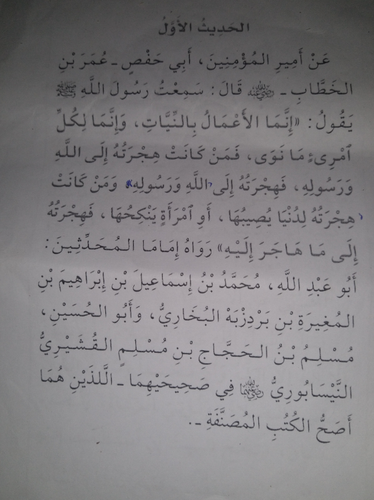 الحَدِيثُ الأَوَّلُ
عَنْ أَمِيرِ المُؤْمِنِينَ، أَبِي حَفْصٍ ـ عُمَرَ بْنِ
الخَطَّابِ ـ رضي الله عنه قَالَ: سَمِعْتُ رَسُولَ اللَّهِ ﷺ
يَقُولُ: «إِنَّمَا الأَعْمَالُ بِالنِّيَّاتِ، وَإِنَّمَا لِكُلِّ
امْرِىءٍ مَا نَوَى، فَمَنْ كَانَتْ هِجْرَتُهُ إِلَى اللَّهِ
وَرَسُولِهِ، فَهِجْرَتُهُ إِلَى اللَّهِ وَرَسُولِهِ، وَمَنْ كَانَتْ
هِجْرَتُهُ لِدُنْيَا يُصِيبُهَا، أَوِ امْرَأَةٍ يَنْكِحُهَا، فَهِجْرَتُهُ
إِلَى مَا هَاجَرَ إِلَيْهِ» رَوَاهُ إِمَامَا المُحَدِّثِينَ:
أَبُو عَبْدِ اللَّهِ، مُحَمَّدُ بْنُ إِسْمَاعِيلَ بْنِ إِبْرَاهِيمَ بْنِ
المُغِيرَةِ بْنِ بَرْدِزْبَهْ البُخَارِيُّ، وَأَبُو الحُسَيْنِ،
مُسْلِمُ بْنُ الحَجَّاجِ بْنِ مُسْلِمٍ القُشَيْرِيُّ
النَّيْسَابُورِيُّ فِي صَحِيحَيْهِمَا ـ اللَّذَيْنِ هُمَا
أَصَحُّ الكُتُبِ المُصَنَّفَةِ ـ.